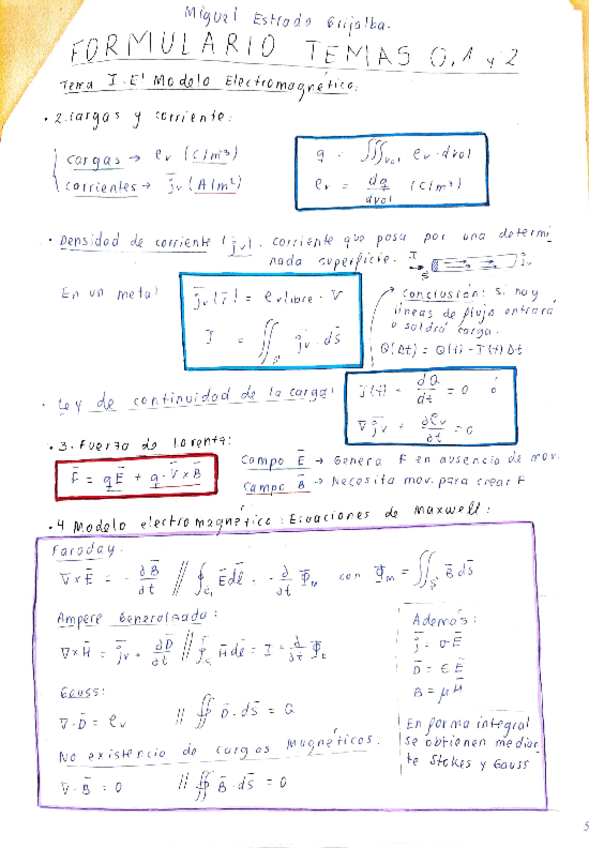 Miguel Estrada Grijalba.
FORMULARIO TEMAS 0,1 y 2
Tema I. El Modelo Electromagnético.
• 2. cargas y corriente:
cargas → ρv (C/m³)
carrientes → j̄v (A/m²)
q = ∭vol ρv · dvol
ρv = dq/dvol (C/m³)
• Densidad de corriente (j̄v). corriente que pasa por una determi
nada superficie.
I
S
j̄v
En un metal
j̄v(r̄) = ρvlibre · v̄
I = ∬S j̄v · ds̄
→ Conclusión: si hay
líneas de flujo entrará
o saldrá carga.
Q(Δt) = Q(t) - I(t) Δt
• Ley de continuidad de la carga:
I(t) + dQ/dt = 0 ó
∇ j̄v + ∂ρv/∂t = 0
• 3. Fuerza de Lorentz:
F̄ = qĒ + q · v̄ × B̄
Campo Ē → Genera F en ausencia de mov.
Campo B̄ → Necesita mov. para crear F
• 4 Modelo electromagnético: Ecuaciones de Maxwell:
Faraday:
∇×Ē = - ∂B̄/∂t // ∮c Ēdl̄ = - ∂/∂t Φm con Φm = ∬S B̄ ds̄
Ampere Generalizado:
∇×H̄ = j̄v + ∂D̄/∂t // ∮c H̄ dl̄ = I + ∂/∂t Φe
Gauss:
∇·D̄ = ρv // ∯ D̄·ds̄ = Q
No existencia de cargas Magnéticas.
∇·B̄ = 0 // ∯ B̄·ds̄ = 0
Además:
j̄ = σĒ
D̄ = ε Ē
B = μ H̄
En forma integral
se obtienen median
te Stokes y Gauss
5